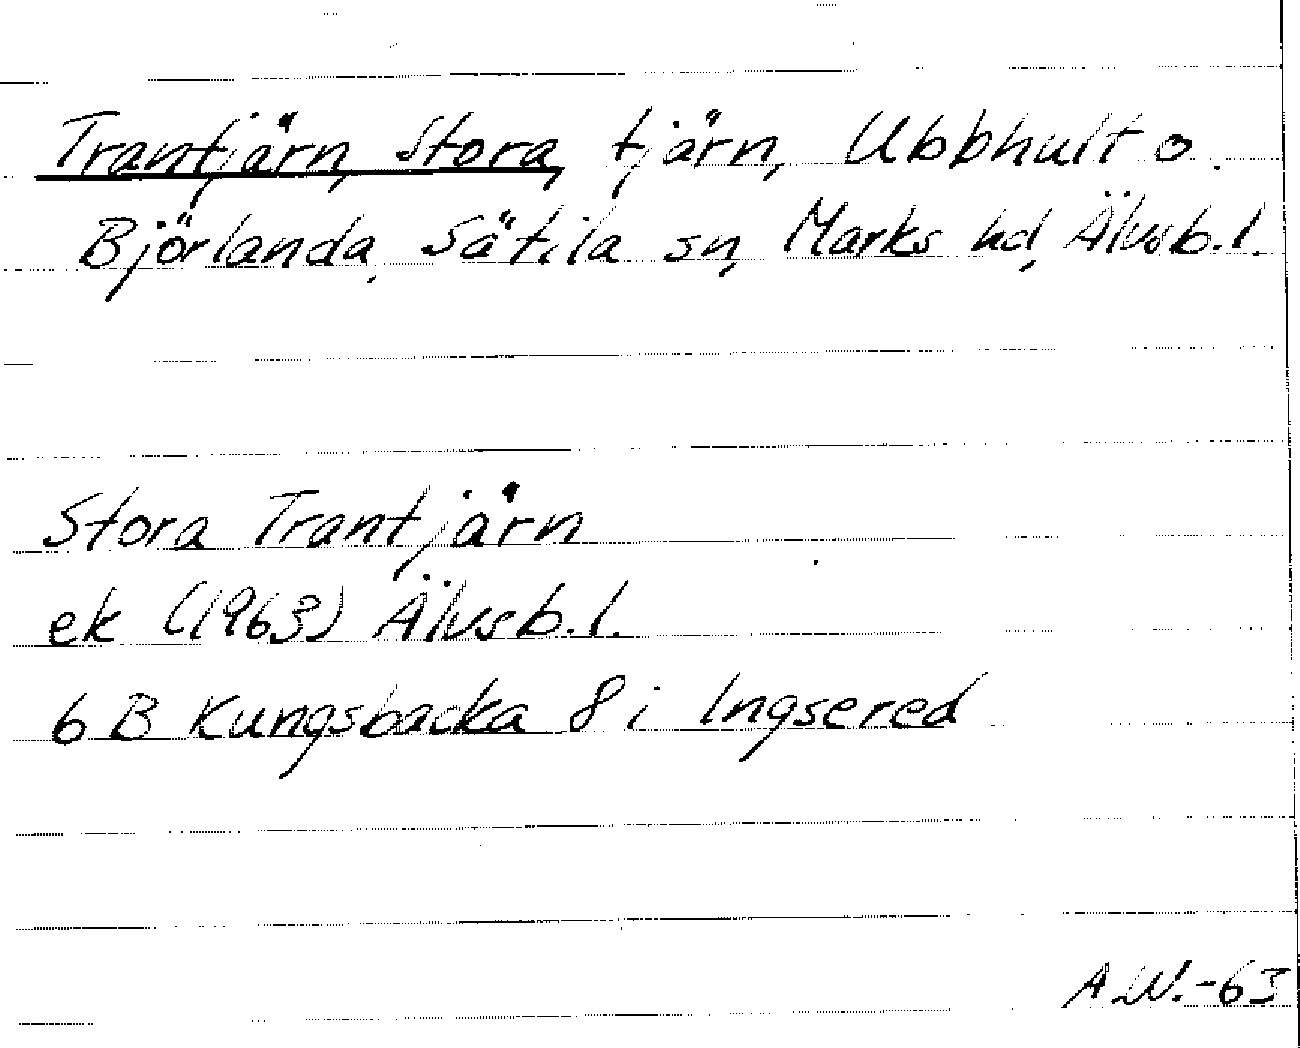 Trantjärn, Stora, tjärn, Ubbhult o.
Björlanda, Sätila sn, Marks hd, Älvsb.l.
Stora Trantjärn
ek (1963) Älvsb.l.
6 B Kungsbacka 8 i Ingsered
A.W.-63